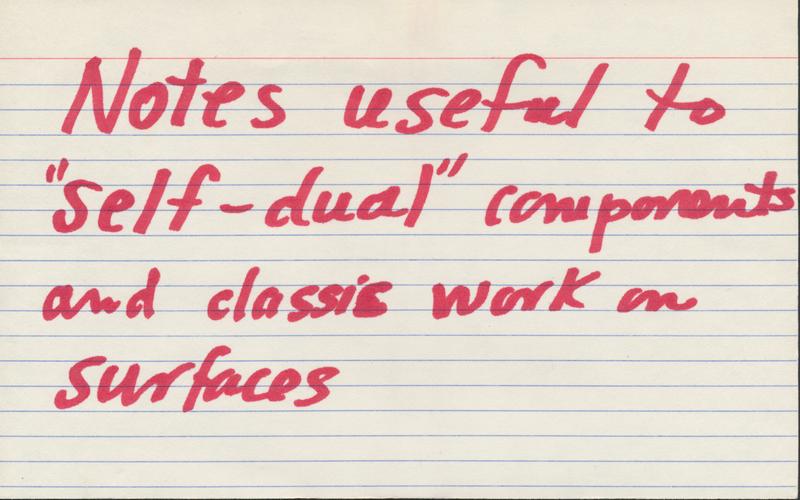 Notes useful to
"self-dual" components
and classic work on
surfaces